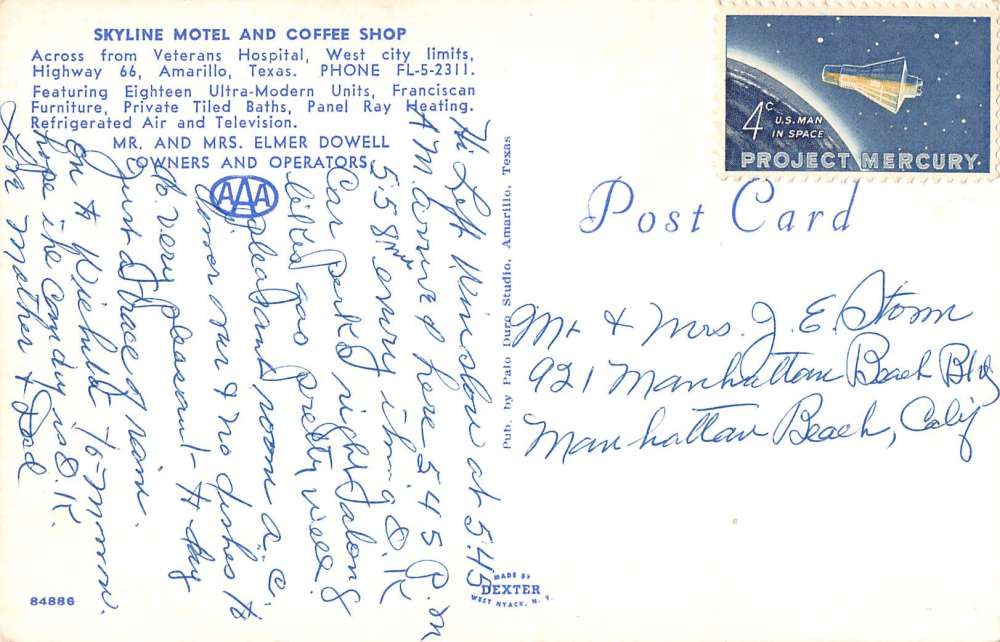 SKYLINE MOTEL AND COFFEE SHOP
Across from Veterans Hospital, West city limits,
Highway 66, Amarillo, Texas. PHONE FL-5-2311.
Featuring Eighteen Ultra-Modern Units, Franciscan
Furniture, Private Tiled Baths, Panel Ray Heating.
Refrigerated Air and Television.
MR. AND MRS. ELMER DOWELL
OWNERS AND OPERATORS
AAA
Hi Left Winslow at 5:45
A M arrived here 5 45 P.m
558 every thing O.K
Car perks right along &
likes gas pretty well.
pleasant room a.c.
dinner over & no dishes to
do. very pleasant - to day
Just a trace of rain.
On to Wichita to-morrow.
hope the candy is O.K.
Love Mother & Dad
84886
Pub. by Palo Duro Studio, Amarillo, Texas
MADE BY
DEXTER
WEST NYACK, N. Y.
4c U.S. MAN
IN SPACE
PROJECT MERCURY
Post Card
Mr & Mrs. J. E. Storm
921 Manhattan Beach Blvd
Manhattan Beach, Calif